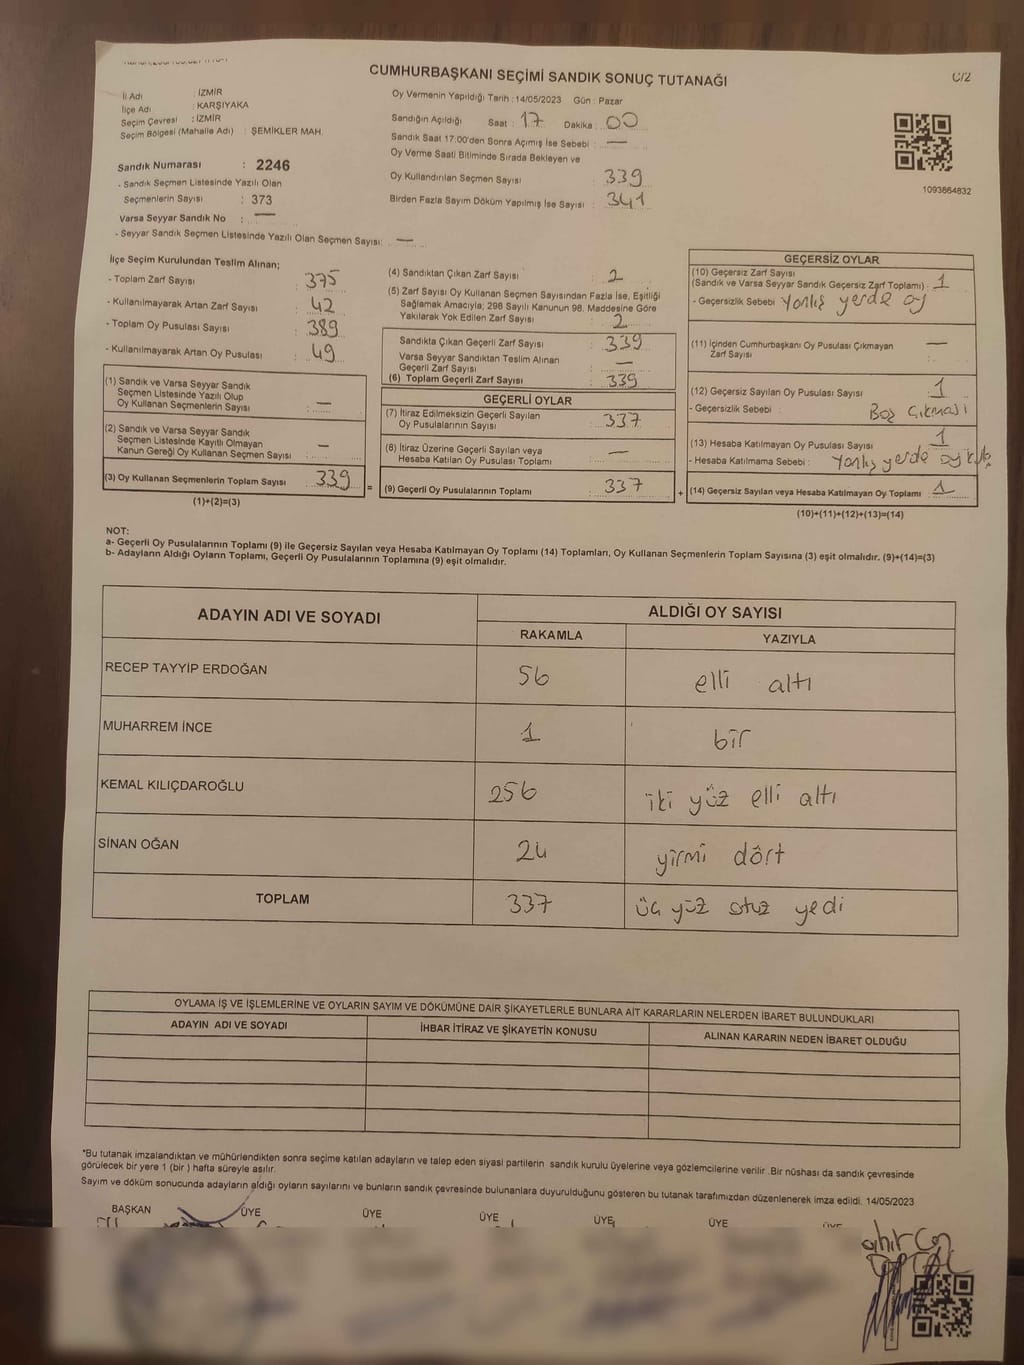 CUMHURBAŞKANI SEÇİMİ SANDIK SONUÇ TUTANAĞI
C/2
İl Adı : İZMİR
İlçe Adı : KARŞIYAKA
Seçim Çevresi : İZMİR
Seçim Bölgesi (Mahalle Adı) : ŞEMİKLER MAH.
Sandık Numarası : 2246
- Sandık Seçmen Listesinde Yazılı Olan
Seçmenlerin Sayısı : 373
Varsa Seyyar Sandık No : —
- Seyyar Sandık Seçmen Listesinde Yazılı Olan Seçmen Sayısı: —
Oy Vermenin Yapıldığı Tarih : 14/05/2023 Gün : Pazar
Sandığın Açıldığı Saat : 17 Dakika : 00
Sandık Saat 17:00'den Sonra Açımış İse Sebebi : —
Oy Verme Saati Bitiminde Sırada Bekleyen ve
Oy Kullandırılan Seçmen Sayısı : 339
Birden Fazla Sayım Döküm Yapılmış İse Sayısı : 341
1093664832
İlçe Seçim Kurulundan Teslim Alınan;
- Toplam Zarf Sayısı : 375
- Kullanılmayarak Artan Zarf Sayısı : 42
- Toplam Oy Pusulası Sayısı : 389
- Kullanılmayarak Artan Oy Pusulası : 49
(1) Sandık ve Varsa Seyyar Sandık
Seçmen Listesinde Yazılı Olup
Oy Kullanan Seçmenlerin Sayısı : —
(2) Sandık ve Varsa Seyyar Sandık
Seçmen Listesinde Kayıtlı Olmayan
Kanun Gereği Oy Kullanan Seçmen Sayısı : —
(3) Oy Kullanan Seçmenlerin Toplam Sayısı : 339
(1)+(2)=(3)
(4) Sandıktan Çıkan Zarf Sayısı : 2
(5) Zarf Sayısı Oy Kullanan Seçmen Sayısından Fazla İse, Eşitliği
Sağlamak Amacıyla; 298 Sayılı Kanunun 98. Maddesine Göre
Yakılarak Yok Edilen Zarf Sayısı : 2
Sandıkta Çıkan Geçerli Zarf Sayısı : 339
Varsa Seyyar Sandıktan Teslim Alınan
Geçerli Zarf Sayısı : —
(6) Toplam Geçerli Zarf Sayısı : 339
GEÇERLİ OYLAR
(7) İtiraz Edilmeksizin Geçerli Sayılan
Oy Pusulalarının Sayısı : 337
(8) İtiraz Üzerine Geçerli Sayılan veya
Hesaba Katılan Oy Pusulası Toplamı : —
= (9) Geçerli Oy Pusulalarının Toplamı : 337 +
GEÇERSİZ OYLAR
(10) Geçersiz Zarf Sayısı
(Sandık ve Varsa Seyyar Sandık Geçersiz Zarf Toplamı) : 1
- Geçersizlik Sebebi : Yanlış yerde oy
(11) İçinden Cumhurbaşkanı Oy Pusulası Çıkmayan
Zarf Sayısı : —
(12) Geçersiz Sayılan Oy Pusulası Sayısı : 1
- Geçersizlik Sebebi : Boş Çıkması
(13) Hesaba Katılmayan Oy Pusulası Sayısı : 1
- Hesaba Katılmama Sebebi : Yanlış yerde oy
(14) Geçersiz Sayılan veya Hesaba Katılmayan Oy Toplamı : 1
(10)+(11)+(12)+(13)=(14)
NOT:
a- Geçerli Oy Pusulalarının Toplamı (9) ile Geçersiz Sayılan veya Hesaba Katılmayan Oy Toplamı (14) Toplamları, Oy Kullanan Seçmenlerin Toplam Sayısına (3) eşit olmalıdır. (9)+(14)=(3)
b- Adayların Aldığı Oyların Toplamı, Geçerli Oy Pusulalarının Toplamına (9) eşit olmalıdır.
ADAYIN ADI VE SOYADI
ALDIĞI OY SAYISI
RAKAMLA YAZIYLA
RECEP TAYYİP ERDOĞAN 56 elli altı
MUHARREM İNCE 1 bir
KEMAL KILIÇDAROĞLU 256 iki yüz elli altı
SİNAN OĞAN 24 yirmi dört
TOPLAM 337 üç yüz otuz yedi
OYLAMA İŞ VE İŞLEMLERİNE VE OYLARIN SAYIM VE DÖKÜMÜNE DAİR ŞİKAYETLERLE BUNLARA AİT KARARLARIN NELERDEN İBARET BULUNDUKLARI
ADAYIN ADI VE SOYADI İHBAR İTİRAZ VE ŞİKAYETİN KONUSU ALINAN KARARIN NEDEN İBARET OLDUĞU
*Bu tutanak imzalandıktan ve mühürlendikten sonra seçime katılan adayların ve talep eden siyasi partilerin sandık kurulu üyelerine veya gözlemcilerine verilir .Bir nüshası da sandık çevresinde
görülecek bir yere 1 (bir ) hafta süreyle asılır.
Sayım ve döküm sonucunda adayların aldığı oyların sayılarını ve bunların sandık çevresinde bulunanlara duyurulduğunu gösteren bu tutanak tarafımızdan düzenlenerek imza edildi. 14/05/2023
BAŞKAN ÜYE ÜYE ÜYE ÜYE ÜYE